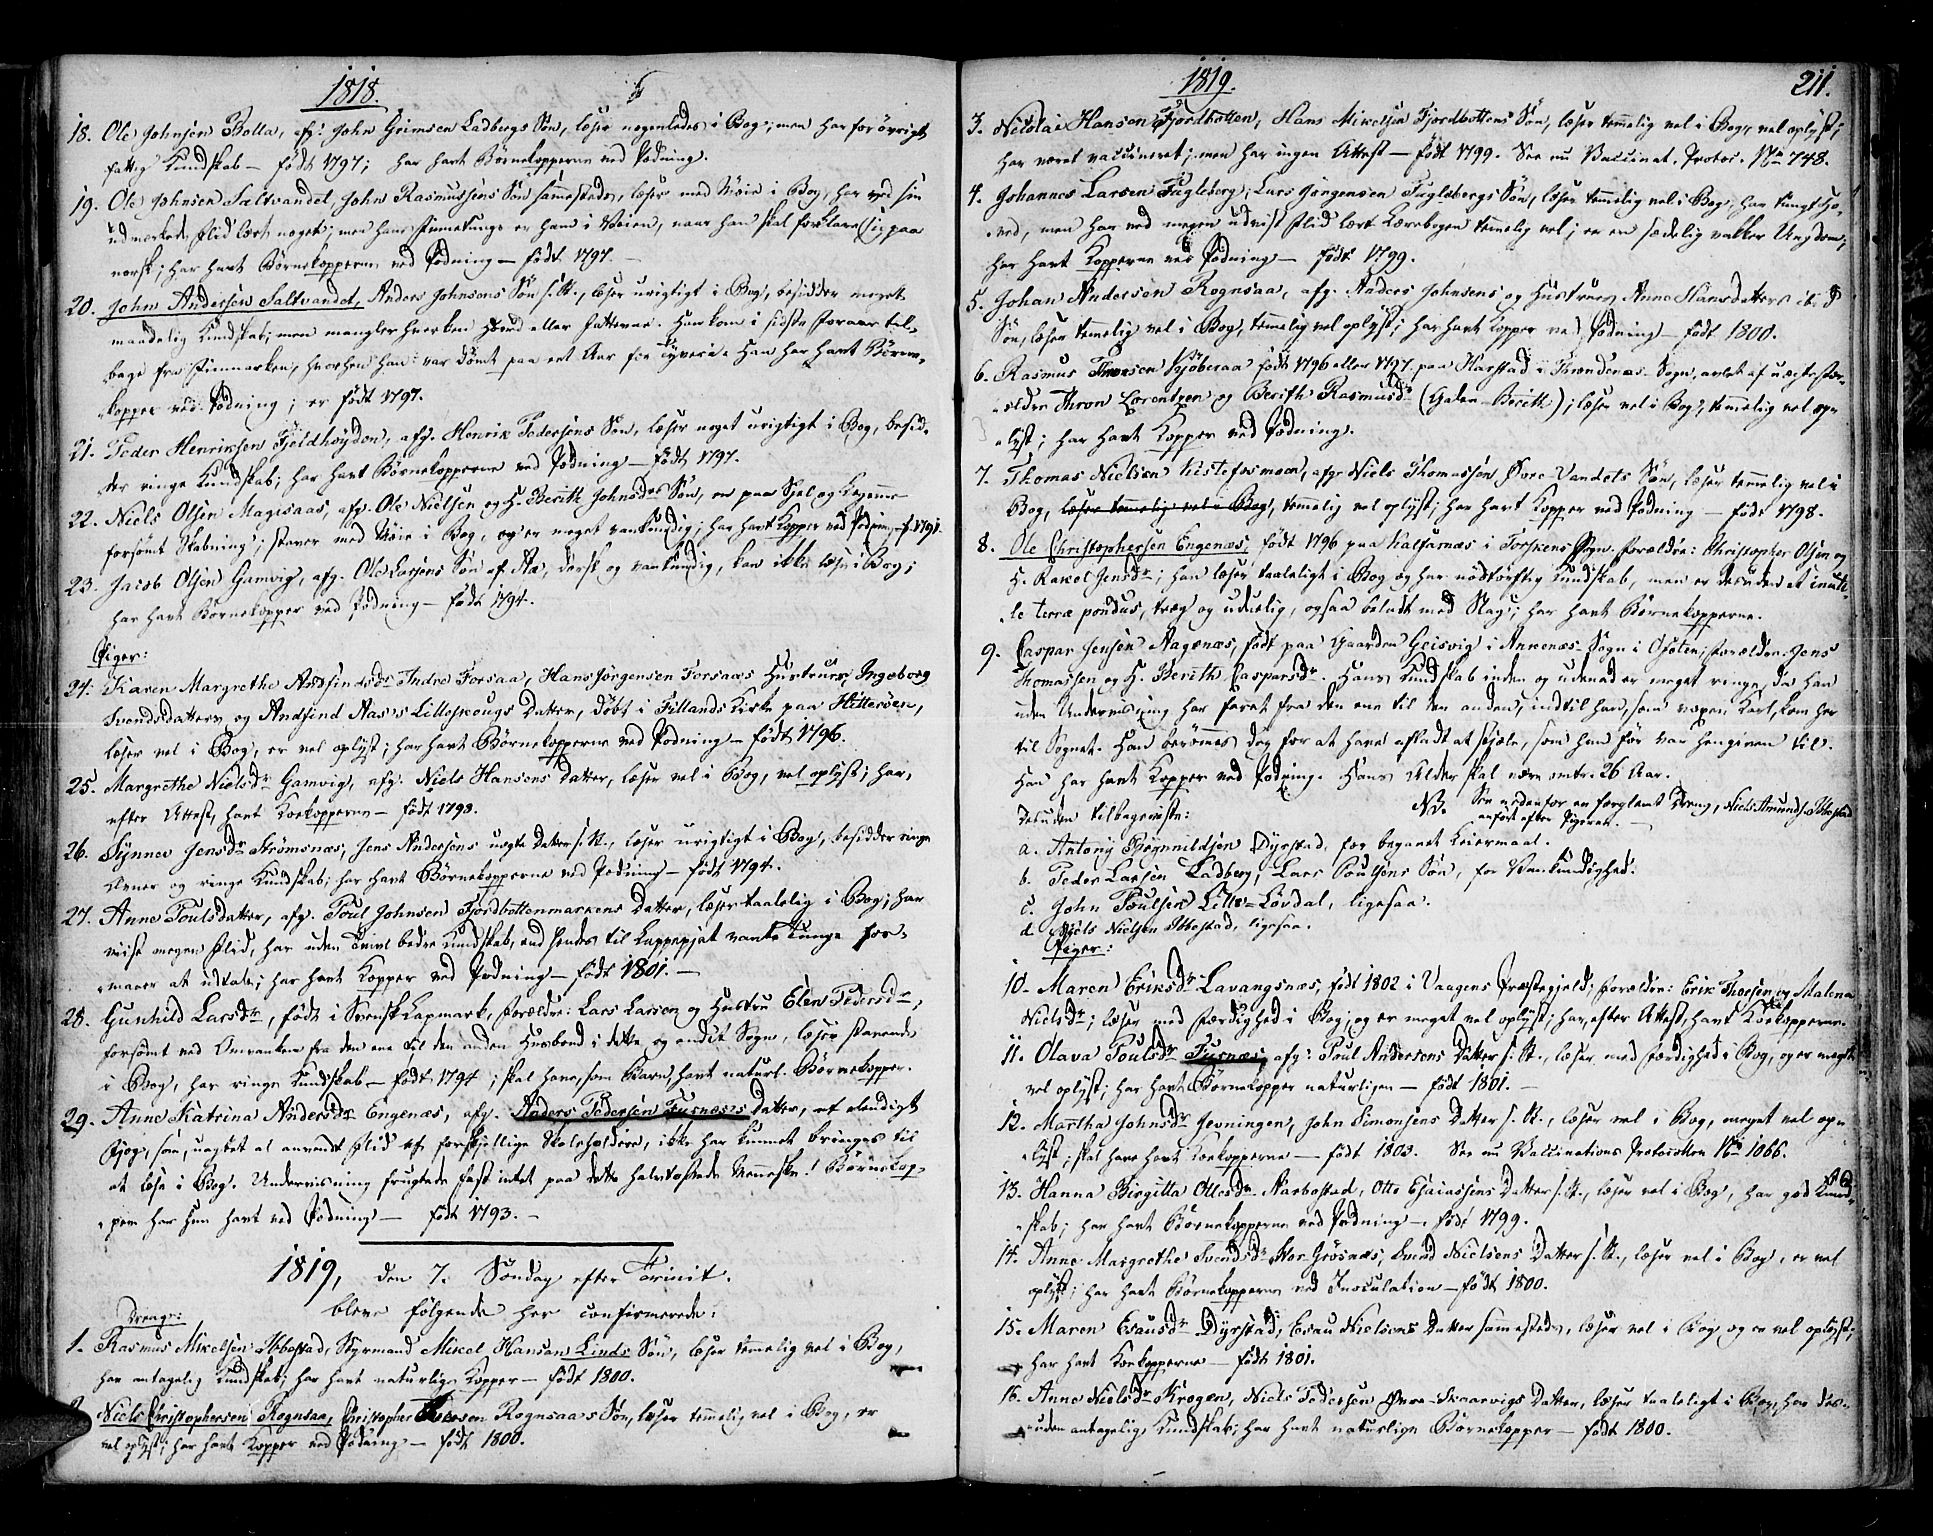 1818.
18. Ole Johnsen Bolla, afg: John Grimsen Ladbergs Søn, læser nogenledes i Bog; men har forøvrigt
fattig Kundskab – født 1797; har havt Børnekopperne ved Podning.
19. Ole Johnsen Saltvandet, John Rasmussens Søn sammesteds, læser med Møie i Bog, har ved sin
udmærkede Flid lært noget; men hans Finnetunge er ham i Veien, naar han skal forklare sig paa
norsk; har havt Børnekopperne ved Podning – født 1797. –
20. John Andersen Saltvandet, Anders Johnsens Søn s. St., læser urigtigt i Bog, besidder meget
maadelig Kundskab; men mangler hverken Hoved eller Fatteevne. Han kom i sidste Foraar til-
bage fra Finmarken, hvorhen han var dømt paa eet Aar for Tyverie. Han har havt Børne-
kopper ved Podning; er født 1797.
21. Peder Henriksen Fjeldhøyden, afg. Henrik Pedersens Søn, læser noget urigtigt i Bog, besid-
der ringe Kundskab; har havt Børnekopperne ved Podning – født 1797.
22. Niels Olsen Magesaas, afg. Ole Nielsen og H. Berith Johnsdrs Søn, er paa Sjel og Legeme
forsømt Skabning; staver med Møie i Bog, og er meget vankundig; har havt Kopper ved Podning – f. 1791.
23. Jacob Olsen Gamvig, afg. Ole Larsens Søn af Aa, dorsk og vankundig, kan ikke læse i Bog;
har havt Børnekopper ved Podning – født 1794.
Piger:
24. Karen Margrethe Andfindsdr Indre Forsaa, Hans Jørgensen Forsaaes Hustrues, Ingeborg
Svendsdatters og Andfind Aas's Lilleskougs Datter, døbt i Fillands Kirke paa Hitterøen,
læser vel i Bog, er vel oplyst; har havt Børnekopperne ved Podning – født 1796.
25. Margrethe Nielsdr Gamvig, afg. Niels Hansens Datter, læser vel i Bog, vel oplyst; har,
efter Attest, havt Koekopperne – født 1798.
26. Synnev Jensdr Strømsnæs, Jens Andersens uægte Datter s. St., læser urigtigt i Bog, besidder ringe
Evner og ringe Kundskab; har havt Børnekopperne ved Podning – født 1794.
27. Anne Poulsdatter, afg. Poul Johnsen Fjordbottenmarkens Datter, læser taalelig i Bog; har
viist megen Flid, har uden Tvivl bedre Kundskab, end hendes til Lappesjat vante Tunge for-
maaer at udtale; har havt Kopper ved Podning – født 1801. –
28. Gunhild Larsdr, født i Svensk Lapmark, Forældre: Lars Larsen og Hustru Elen Pedersdr,
forsømt ved Omvanken fra den ene til den anden Husbond i dette og andet Sogn, læser stavende
i Bog, har ringe Kundskab – født 1794; skal have, som Barn, havt naturl. Børnekopper.
29. Anne Katrina Andersdr Engenæs, afg. Anders Pedersen Furnæs's Datter, et elendigt
Skjog, som, uagtet al anvendt Flid af forskjellige Skoleholdere, ikke har kunnet bringes til
at læse i Bog. Underviisning frugtede fast intet paa dette halvtossede Menneske! Børnekop-
perne har hun havt ved Podning – født 1793. –
1819, den 7. Søndag efter Trinit.
bleve følgende her confirmerede:
Drenge:
1. Rasmus Mikelsen Ibbestad, Styrmand Mikel Hansen Linds Søn, læser temmelig vel i Bog,
har antagelig Kundskab; har havt naturlige Kopper – født 1800.
2. Niels Christophersen Rognsaa, Christopher Rognsaas Søn, læser temmelig vel i Bog, er
vel oplyst; har havt Kopper ved Podning – født 1800.
1819.
211.
3. Nicolai Hansen Fjordbotten, Hans Mikelsen Fjordbottens Søn, læser temmelig vel i Bog, vel oplyst;
har været vaccineret; men har ingen Attest – født 1799. See nu Vaccinat. Protoc. No 748.
4. Johannes Larsen Fugleberg, Lars Jørgensen Fuglebergs Søn, læser temmelig vel i Bog, har tungt Ho-
ved, men har ved megen udviist Flid lært Lærebogen temmelig vel; er en sædelig vakker Ungdom;
har havt Kopperne ved Podning – født 1799.
5. Johan Andersen Rognsaa, afg. Anders Johnsens og Hustrues Anne Hansdatters
Søn, læser temmelig vel i Bog, temmelig vel oplyst; har havt Kopper ved Podning – født 1800.
6. Rasmus Thronsen Sjøberaa født 1796 eller 1797 paa Harstad i Throndenæs Sogn, avlet af uægte For-
ældre Thron Lorentzen og Berith Rasmusdr (Galen-Berith); læser vel i Bog, temmelig vel op-
lyst; har havt Kopper ved Podning.
7. Thomas Nielsen Kistefosmoen, afg. Niels Thomassen Øvre-Vandets Søn, læser temmelig vel i
Bog, læser temmelig vel i Bog, temmelig vel oplyst; har havt Kopper ved Podning – født 1798.
8. Ole Christophersen Engenæs, født 1796 paa Kalfarnæs i Torskens Sogn. Forældre: Christopher Olsen og
H. Rakel Jensdr; han læser taaleligt i Bog og har nødtørftig Kundskab, men er desuden et inuti-
le terræ pondus, træg og uduelig, ogsaa beladt med Slag; har havt Børnekopperne.
9. Caspar Jensen Aagenæs, født paa Gaarden Geisvig i Ankenæs Sogn i Ofoten; Forældre: Jens
Thomassen og H. Berith Caspersdr. Hans Kundskab inden og udenad er meget ringe, da han
uden Underviisning har faret fra den ene til den anden, indtil han, som voxen Karl, kom her
til Sognet. Han berømmes dog for at have afladt at stjæle, som han før var hengiven til.
Han har havt Kopper ved Podning. Hans Alder skal være omtr. 26 Aar.
desuden tilbageviiste:
NB. See nedenfor en forglemt Dreng, Niels Amunds. Ibbestad
anført efter Pigerne. –
a. Antony Rognvaldsen Dyrstad, for beganet Leiermaal.
b. Peder Larsen Ladberg, Lars Poulsens Søn, for Vankundighed.
c. John Poulsen Lille-Løvdal, ligesaa.
d. Niels Nielsen Ibbestad, ligesaa.
Piger:
10. Maren Eriksdr Lavangsnæs, født 1802 i Vaagens Præstegjeld; Forældre: Erik Thorsen og Malena
Nielsdr; læser med Færdighed i Bog, og er meget vel oplyst; har, efter Attest, havt Koekopperne.
11. Olava Poulsdr Furnæs, afg: Poul Andersens Datter s. St., læser med Færdighed i Bog, og er meget
vel oplyst; har havt Børnekopper naturligen – født 1801. –
12. Martha Johnsdr Jevningen, John Simonsens Datter s. St., læser vel i Bog, meget vel op-
lyst; skal have havt Koekopperne – født 1803. See nu Vaccinations Protocollen No 1066.
13. Hanna Birgitta Ottesdr Aarbostad, Otto Esaiassens Datter s. St., læser vel i Bog, har god Kund-
skab; har havt Børnekopperne ved Podning – født 1799.
14. Anne Margrethe Svendsdr Stor Grøsnæs, Svend Nielsens Datter s. St., læser vel i Bog, er vel
oplyst; har havt Børnekopperne ved Inoculation – født 1800.
15. Maren Esausdr Dyrstad, Esau Nielsens Datter sammesteds, læser vel i Bog og er vel oplyst;
har havt Koekopperne – født 1801.
16. Anne Nielsdr Krogen, Niels Pedersen Øvre-Skaarvigs Datter, læser taaleligt i Bog, har des-
uden antagelig Kundskab; har havt naturlige Børnekopper – født 1800.